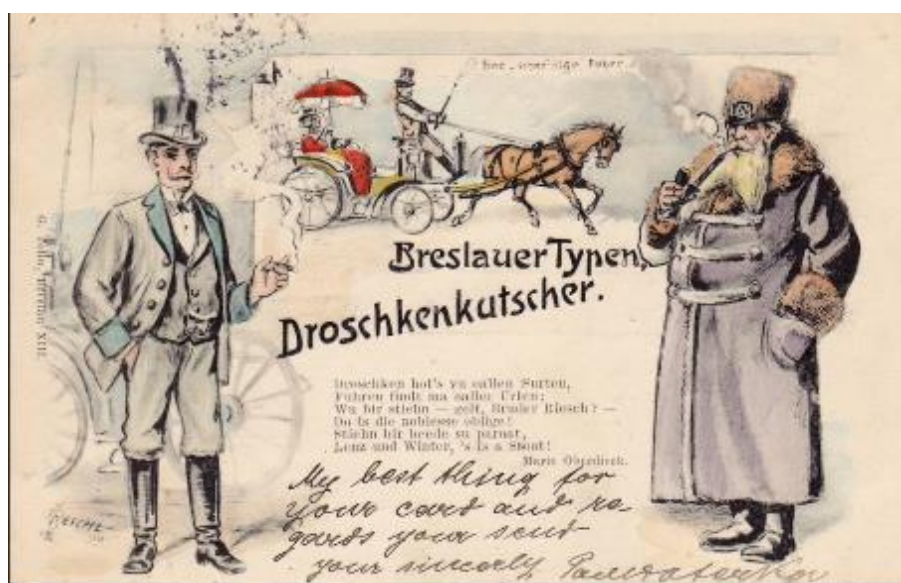 Breslauer Typen,
Droschkenkutscher.
Droschken hot's vu ollen Surten,
Fuhren findt ma oller Urten;
Wu bir stiehn — gelt, Bruder Riesch? —
Do is die noblesse oblige!
Stiehn bir beede su parat,
Lenz und Winter, 's is a Stoot!
Marie Oberdieck.
My best thing for
your card and re-
gards your send
your sincerly